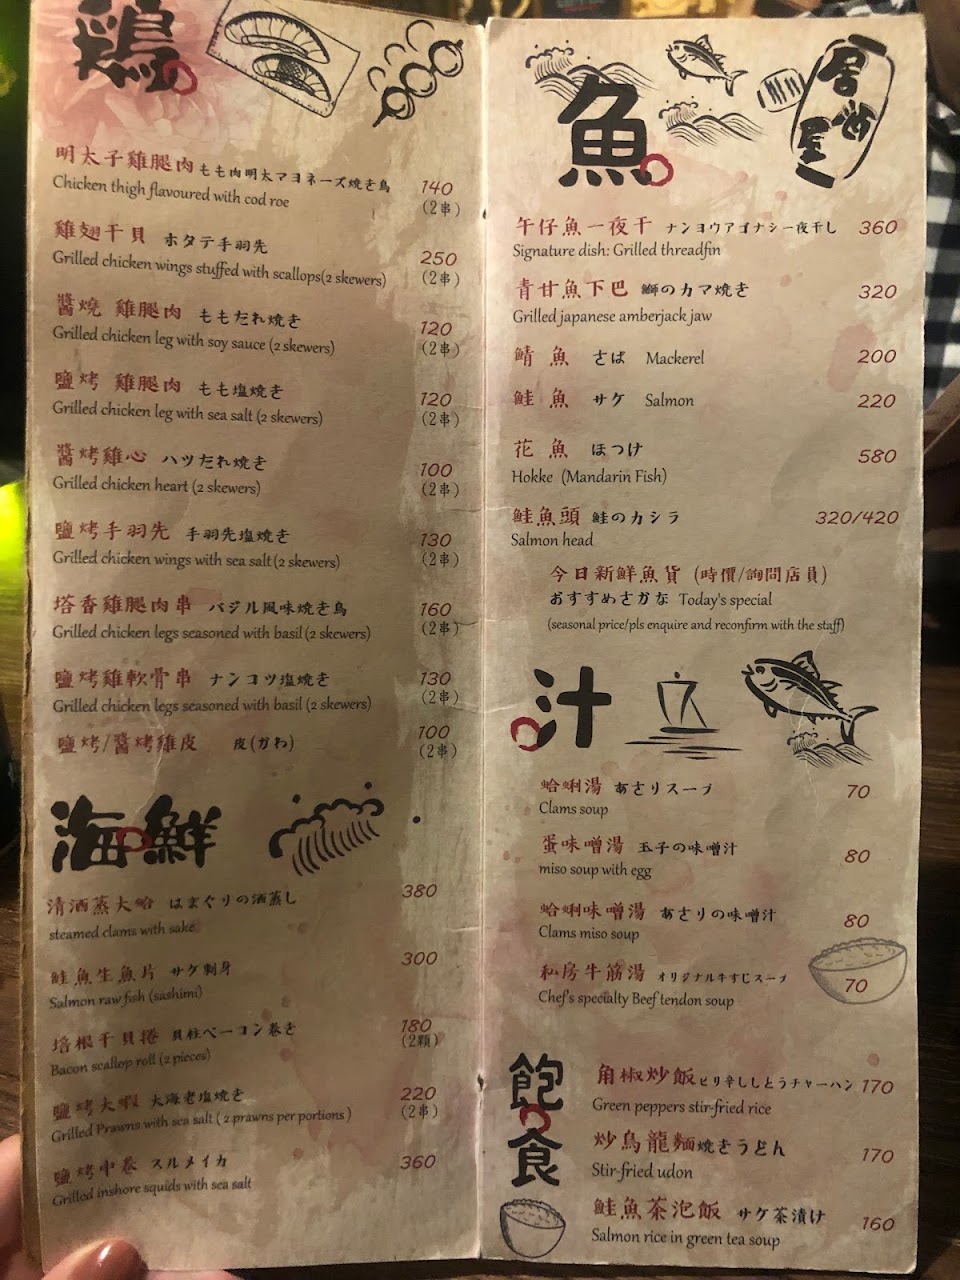 鶏
明太子雞腿肉 もも肉明太マヨネーズ焼き鳥 140
Chicken thigh flavoured with cod roe (2串)
雞翅干貝 ホタテ手羽先 250
Grilled chicken wings stuffed with scallops(2 skewers) (2串)
醬燒 雞腿肉 ももだれ焼き 120
Grilled chicken leg with soy sauce (2 skewers) (2串)
鹽烤 雞腿肉 もも塩焼き 120
Grilled chicken leg with sea salt (2 skewers) (2串)
醬烤雞心 ハツだれ焼き 100
Grilled chicken heart (2 skewers) (2串)
鹽烤手羽先 手羽先塩焼き 130
Grilled chicken wings with sea salt (2 skewers) (2串)
塔香雞腿肉串 バジル風味焼き鳥 160
Grilled chicken legs seasoned with basil (2 skewers) (2串)
鹽烤雞軟骨串 ナンコツ塩焼き 130
Grilled chicken legs seasoned with basil (2 skewers) (2串)
鹽烤/醬烤雞皮 皮(かわ) 100
(2串)
海鮮
清酒蒸大蛤 はまぐりの酒蒸し 380
steamed clams with sake
鮭魚生魚片 サケ刺身 300
Salmon raw fish (sashimi)
培根干貝捲 貝柱ベーコン巻き 180
Bacon scallop roll (2 pieces) (2顆)
鹽烤大蝦 大海老塩焼き 220
Grilled Prawns with sea salt ( 2 prawns per portions ) (2串)
鹽烤中卷 スルメイカ 360
Grilled inshore squids with sea salt
魚
居酒屋
午仔魚一夜干 ナンヨウアゴナシ一夜干し 360
Signature dish: Grilled threadfin
青甘魚下巴 鰤のカマ焼き 320
Grilled japanese amberjack jaw
鯖 魚 さば Mackerel 200
鮭 魚 サケ Salmon 220
花 魚 ほつけ 580
Hokke (Mandarin Fish)
鮭魚頭 鮭のカシラ 320/420
Salmon head
今日新鮮魚貨 (時價/詢問店員)
おすすめさかな Today's special
(seasonal price/pls enquire and reconfirm with the staff)
汁
蛤蜊湯 あさりスープ 70
Clams soup
蛋味噌湯 玉子の味噌汁 80
miso soup with egg
蛤蜊味噌湯 あさりの味噌汁 80
Clams miso soup
私房牛筋湯 オリジナル牛すじスープ 70
Chef's specialty Beef tendon soup
飽食
角椒炒飯 ピリ辛ししとうチャーハン 170
Green peppers stir-fried rice
炒烏龍麵 焼きうどん 170
Stir-fried udon
鮭魚茶泡飯 サケ茶漬け 160
Salmon rice in green tea soup